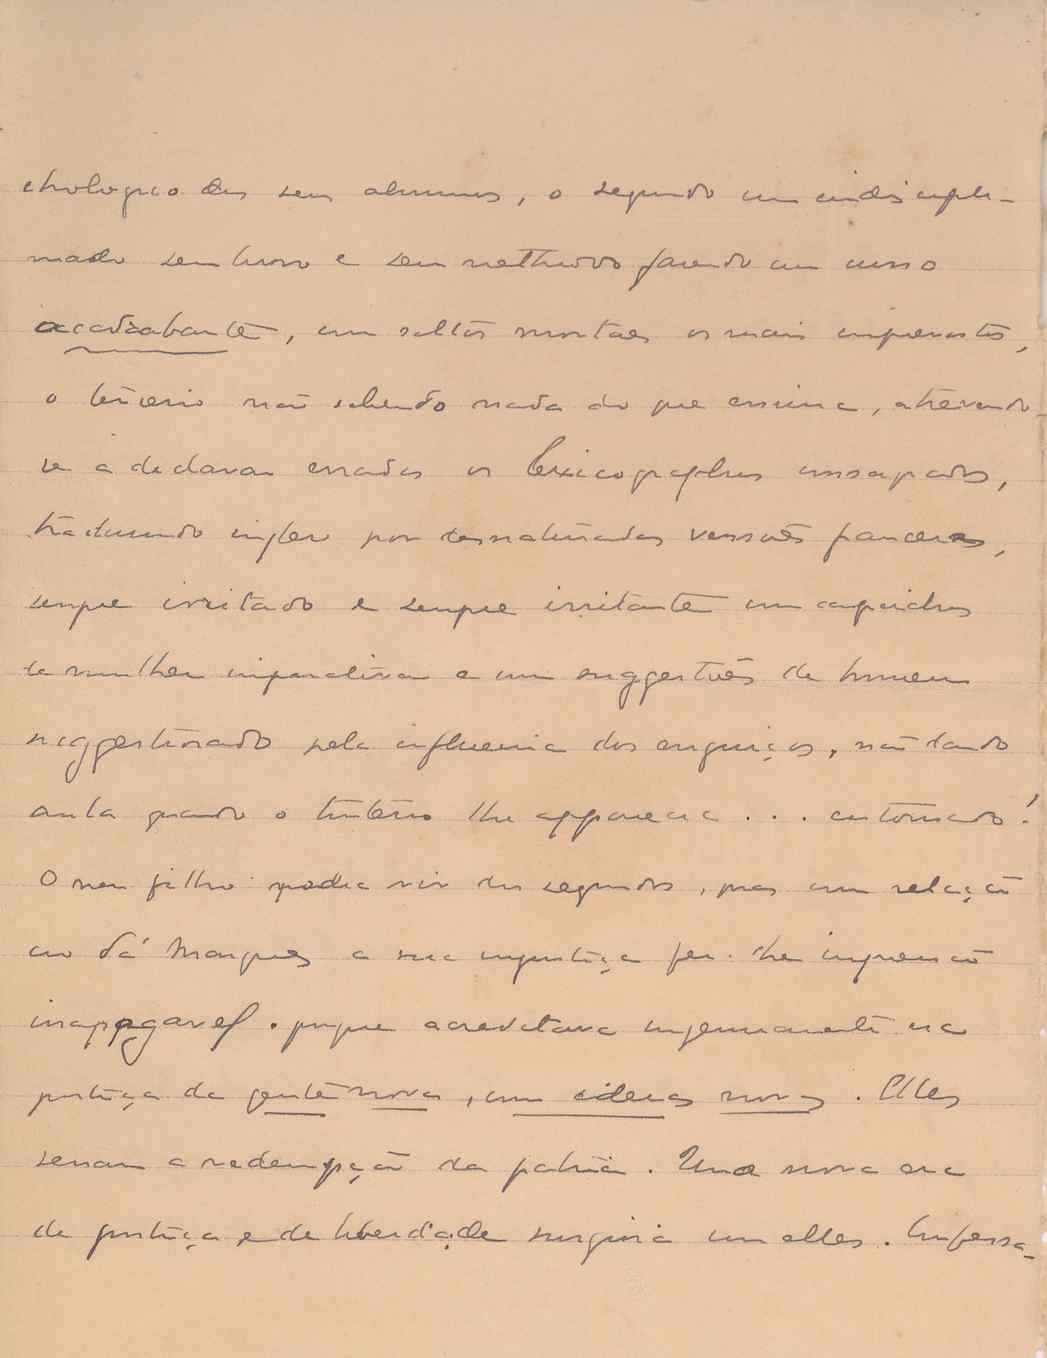 chologico dos seus alumnos, o segundo um indiscipli-
nado sem livro e sem methodo fazendo um curso
acadrabante, com saltos mortaes os mais imprevistos,
o terceiro não sabendo nada do que ensina, atrevendo-
se a declarar errados os lexicographos consagrados,
traduzindo inglez por desnaturadas versões francezas,
sempre irritado e sempre irritante com caprichos
de mulher imperativa e com suggestões de homem
suggestionado pela influencia dos enguiços, não dando
aula quando o tinteiro lhe apparecia . . . entornado!
O meu filho podia rir dos segundos, mas com relação
ao Sá Marques a sua injustiça fez-lhe impressão
inapagavel. porque acreditava ingenuamente na
justiça da gente nova, com ideias novas. Elles
seriam a redempção da patria. Uma nova era
de justiça e de liberdade surgiria com elles. Confessa-